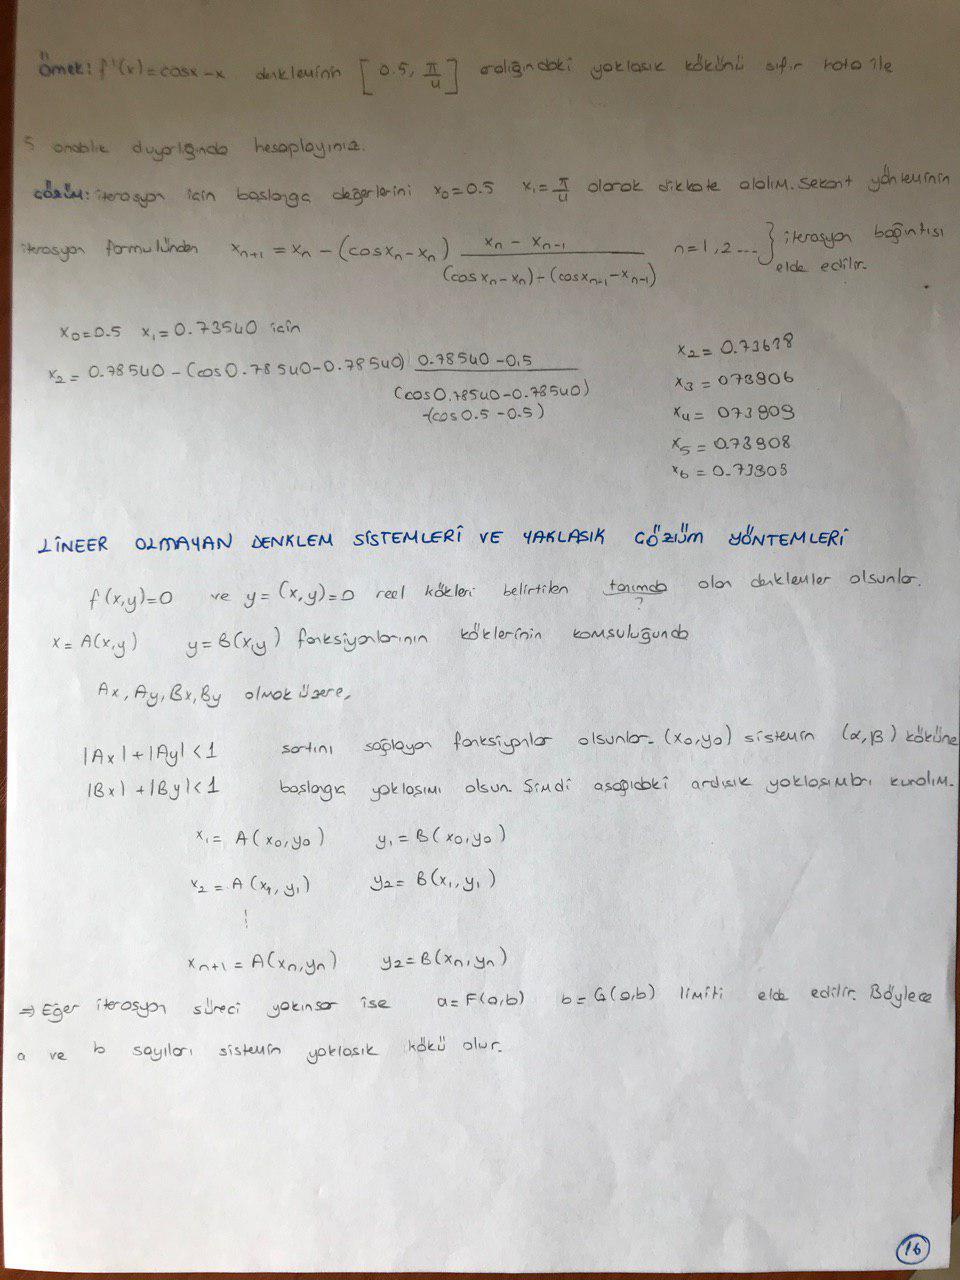 Örnek: f'(x)=cosx-x denkleminin [0.5, π/4] aralığındaki yaklasık kökünü sıfır hata ile
5 ondalık duyarlığında hesaplayınız.
Gözüm: iterasyon için baslangıç değerlerini x₀=0.5 x₁=π/4 olarak dikkate alalım. Sekant yönteminin
iterasyon formülünden xₙ₊₁ = xₙ - (cosxₙ-xₙ) (xₙ - xₙ₋₁)/((cosxₙ-xₙ)-(cosxₙ₋₁-xₙ₋₁)) n=1,2... } iterasyon bağıntısı elde edilir.
x₀=0.5 x₁=0.73540 için
x₂= 0.78540 - (cos0.78540-0.78540) (0.78540-0.5)/((cos0.78540-0.78540)-(cos0.5-0.5))
x₂= 0.73678
x₃= 073906
x₄= 073909
x₅= 0.73908
x₆= 0.73308
LİNEER OLMAYAN DENKLEM SİSTEMLERİ VE YAKLASIK GÖZÜM YÖNTEMLERİ
f(x,y)=0 ve y=(x,y)=0 reel kökleri belirtilen tanımda olan denklemler olsunlar.
?
x= A(x,y) y= B(x,y) fonksiyonlarının köklerinin komsuluğunda
Ax, Ay, Bx, By olmak üzere,
|Ax|+|Ay|<1 sartını sağlayan fonksiyonlar olsunlar. (x₀,y₀) sistemin (α,β) köküne
|Bx|+|By|<1 baslangıç yaklasımı olsun. Simdi asağıdaki ardısık yaklasımları kuralım.
x₁= A(x₀,y₀) y₁= B(x₀,y₀)
x₂= A(x₁,y₁) y₂= B(x₁,y₁)
⋮
xₙ₊₁= A(xₙ,yₙ) y₂=B(xₙ,yₙ)
⇒ Eğer iterasyon süreci yakınsar ise a=F(a,b) b=G(a,b) limiti elde edilir. Böylece
a ve b sayıları sistemin yaklasık kökü olur.
16